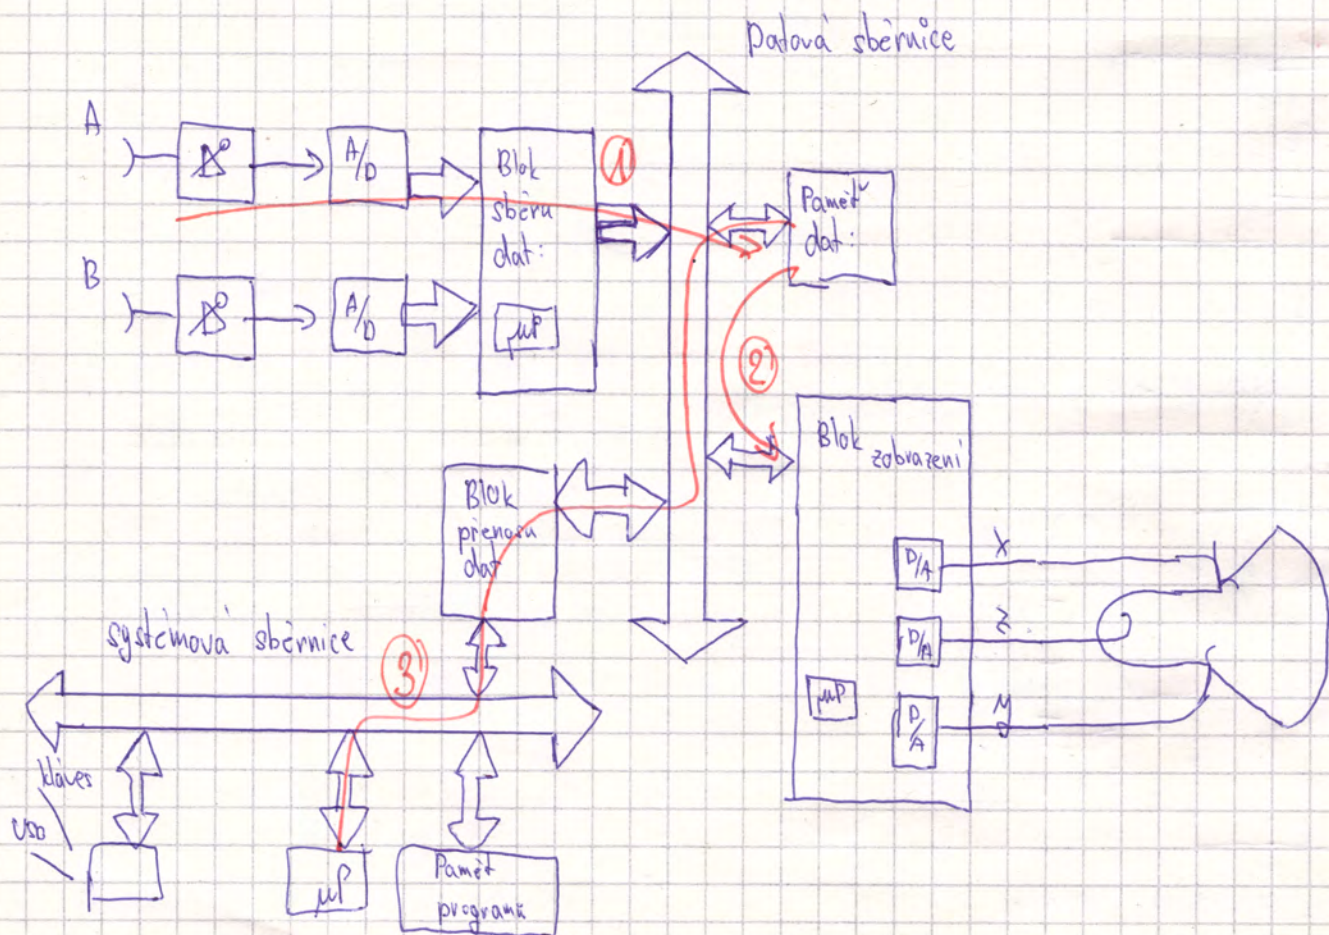 Datová sběrnice
A
A/D
Blok
sběru
dat:
μP
1
Paměť
dat:
B
A/D
2
Blok
zobrazení
D/A
X
D/A
Z
D/A
y
μP
Blok
přenosu
dat
systémová sběrnice
3
kláves
USB
μP
Paměť
programů